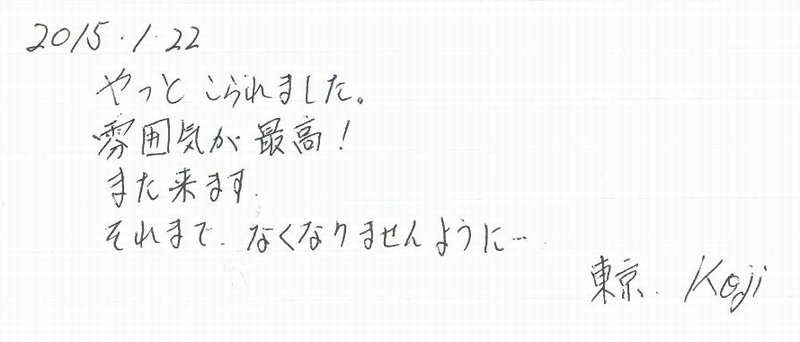 2015.1.22
やっと こられました。
雰囲気が 最高!
また来ます.
それまで. なくなりませんように…
東京. Koji